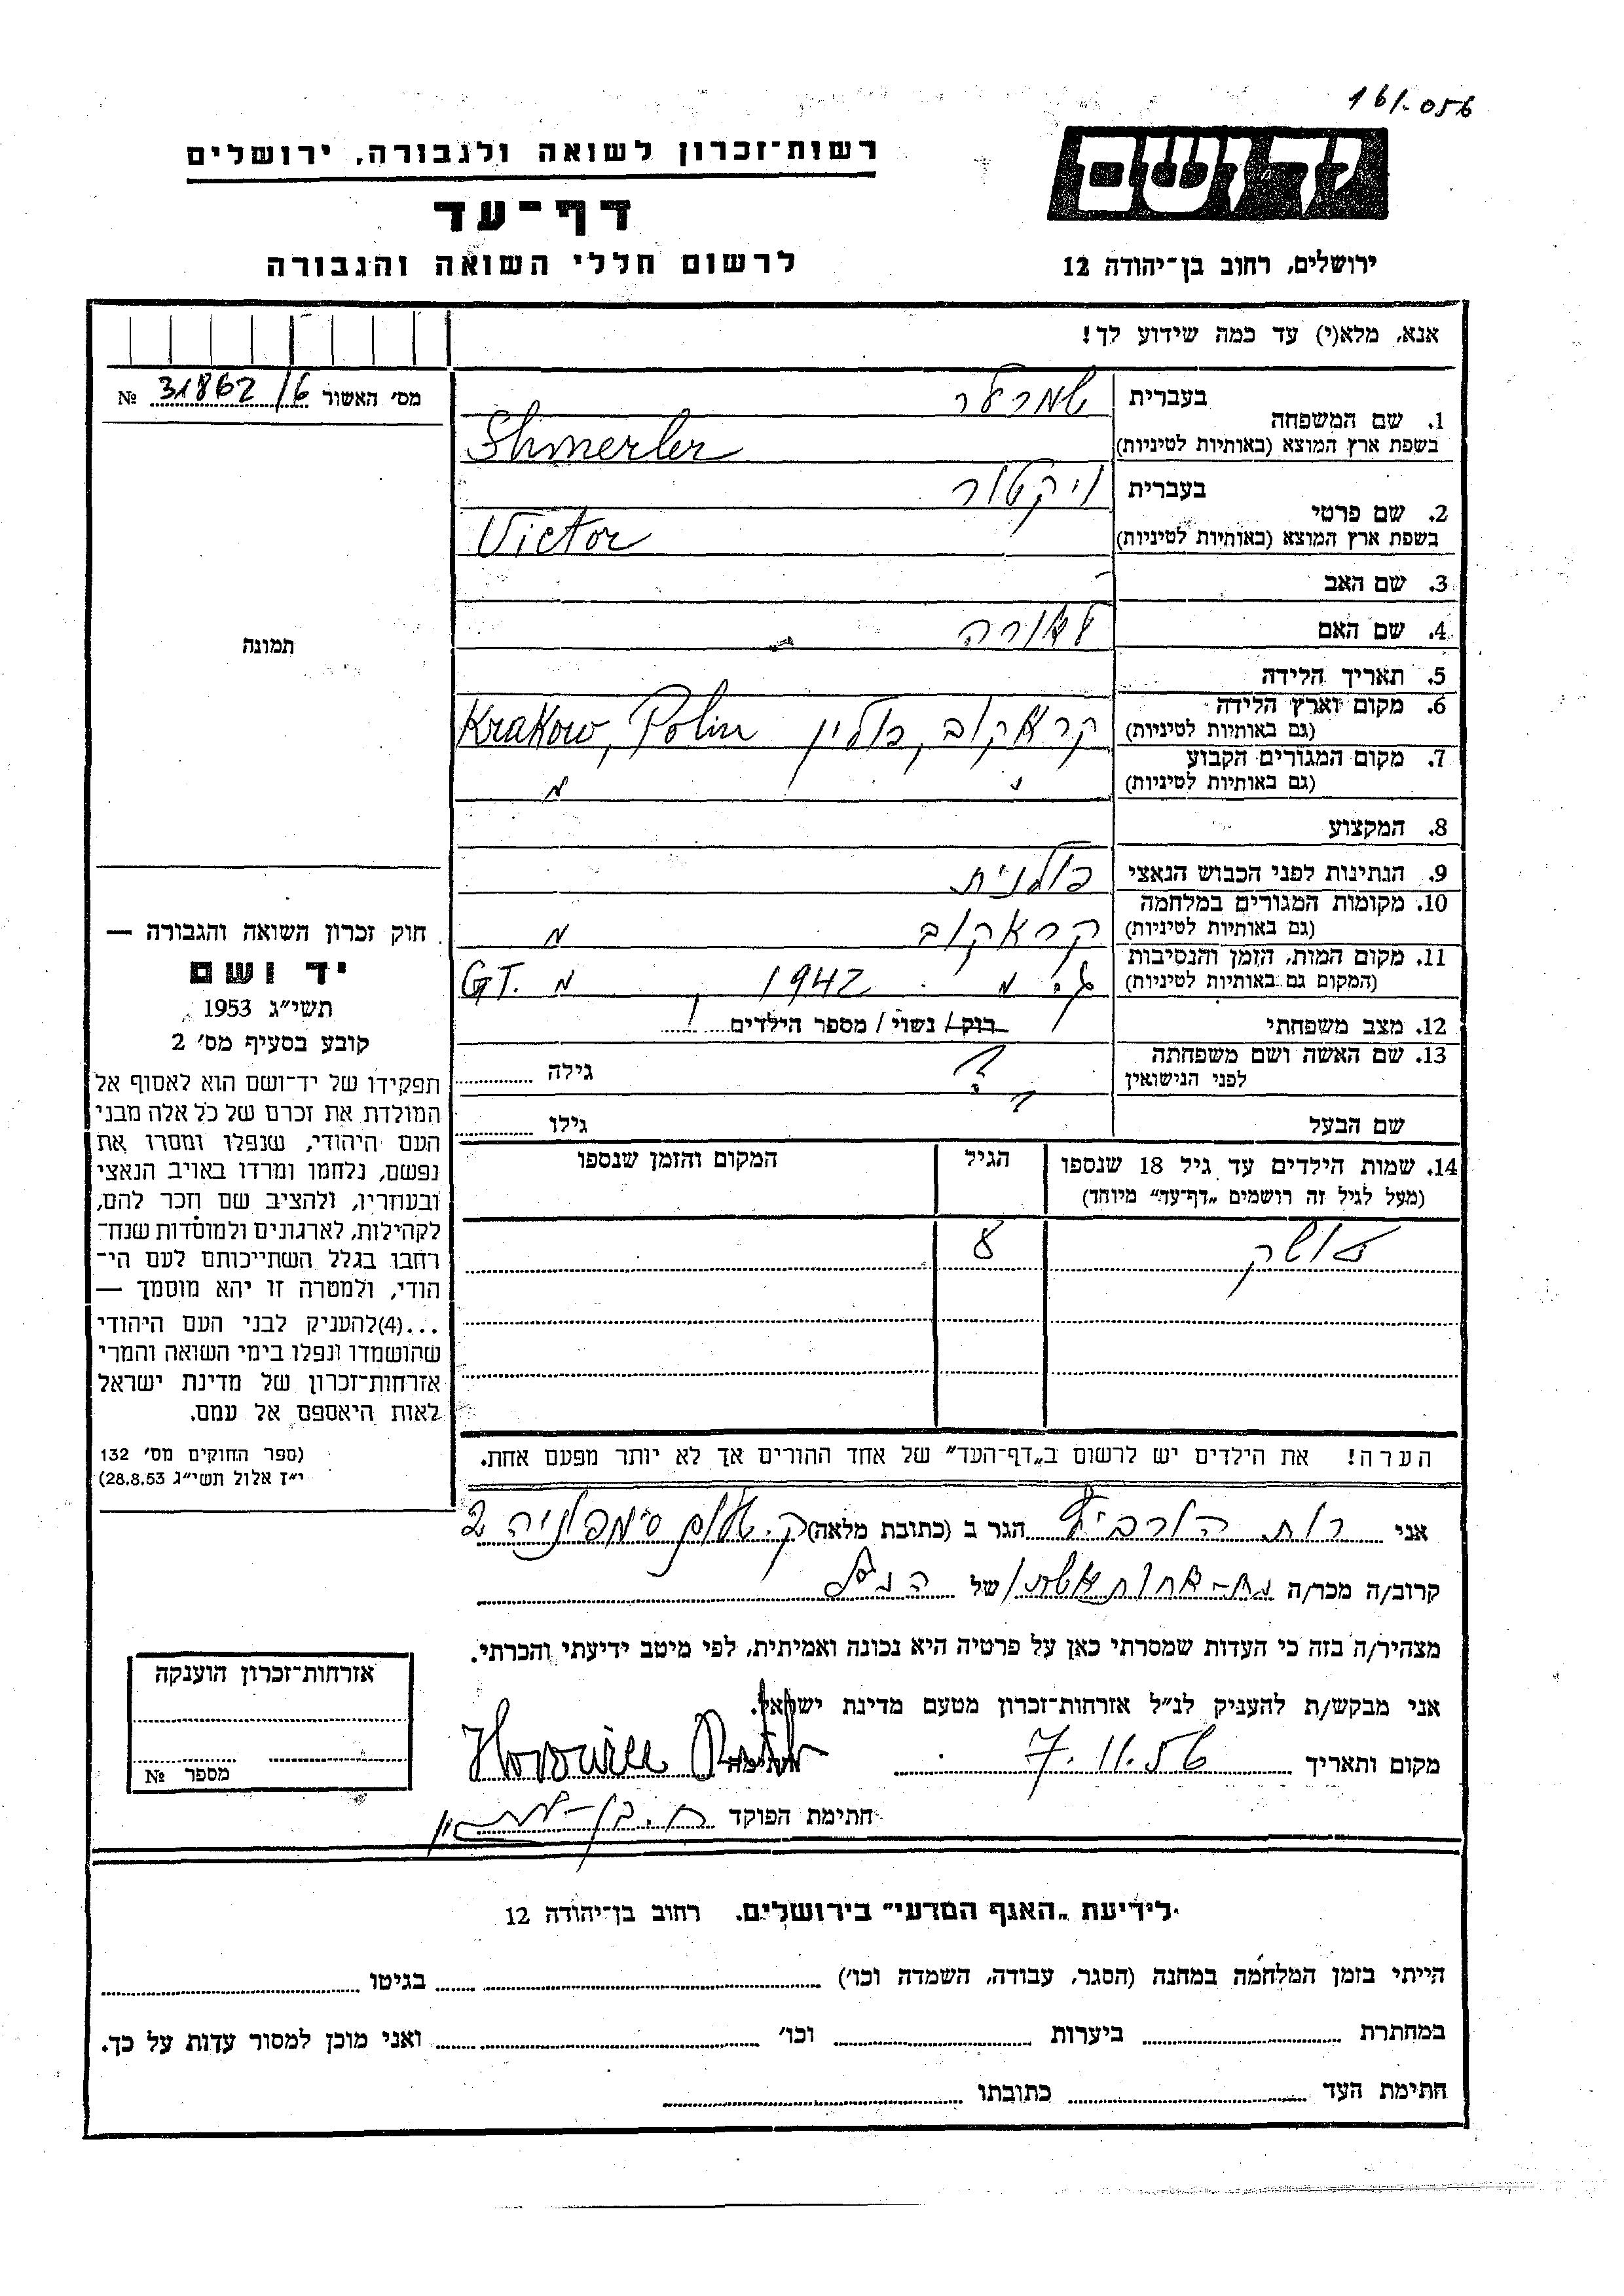 161.056
יד ושם
רשות־זכרון לשואה ולגבורה, ירושלים
דף־עד
לרשום חללי השואה והגבורה
ירושלים, רחוב בן־יהודה 12
אנא, מלא(י) עד כמה שידוע לך!
מס׳ האשור 31862/6 №
תמונה
1. שם המשפחה
בעברית שמרלר
בשפת ארץ המוצא (באותיות לטיניות) Shmerler
2. שם פרטי
בעברית ויקטור
בשפת ארץ המוצא (באותיות לטיניות) Victor
3. שם האב -
4. שם האם לאורה
5. תאריך הלידה
6. מקום וארץ הלידה
(גם באותיות לטיניות) קראקוב, פולין Krakow, Polin
7. מקום המגורים הקבוע
(גם באותיות לטיניות)
8. המקצוע
9. הנתינות לפני הכבוש הנאצי פולנית
10. מקומות המגורים במלחמה
(גם באותיות לטיניות) קראקוב
11. מקום המות, הזמן והנסיבות
(המקום גם באותיות לטיניות) 1942 GT.
12. מצב משפחתי רוק/ נשוי/ מספר הילדים 1
13. שם האשה ושם משפחתה ? גילה
לפני הנישואין
שם הבעל גילו
14. שמות הילדים עד גיל 18 שנספו
(מעל לגיל זה רושמים „דף־עד״ מיוחד)
הגיל
המקום והזמן שנספו
8
חוק זכרון השואה והגבורה —
יד ושם
תשי״ג 1953
קובע בסעיף מס׳ 2
תפקידו של יד־ושם הוא לאסוף אל
המולדת את זכרם של כל אלה מבני
העם היהודי, שנפלו ומסרו את
נפשם, נלחמו ומרדו באויב הנאצי
ובעוזריו, ולהציב שם וזכר להם,
לקהילות, לארגונים ולמוסדות שנח־
רחבו בגלל השתייכותם לעם הי־
הודי, ולמטרה זו יהא מוסמך —
...(4)להעניק לבני העם היהודי
שהושמדו ונפלו בימי השואה והמרי
אזרחות־זכרון של מדינת ישראל
לאות היאספם אל עמם.
(ספר החוקים מס׳ 132
י״ז אלול תשי״ג 28.8.53)
הערה! את הילדים יש לרשום ב„דף־העד״ של אחד ההורים אך לא יותר מפעם אחת.
אני רות הורביץ הגר ב (כתובת מלאה) ק. 2
קרוב/ה מכר/ה של הנ״ל
מצהיר/ה בזה כי העדות שמסרתי כאן על פרטיה היא נכונה ואמיתית, לפי מיטב ידיעתי והכרתי.
אני מבקש/ת להעניק לנ״ל אזרחות־זכרון מטעם מדינת ישראל.
מקום ותאריך 7.11.56 חתימה Horowicz Ruth
חתימת הפוקד
אזרחות־זכרון הוענקה
מספר №
לידיעת „האגף המדעי״ בירושלים. רחוב בן־יהודה 12
הייתי בזמן המלחמה במחנה (הסגר, עבודה, השמדה וכו׳) בגיטו
במחתרת ביערות וכו׳ ואני מוכן למסור עדות על כך.
חתימת העד כתובתו